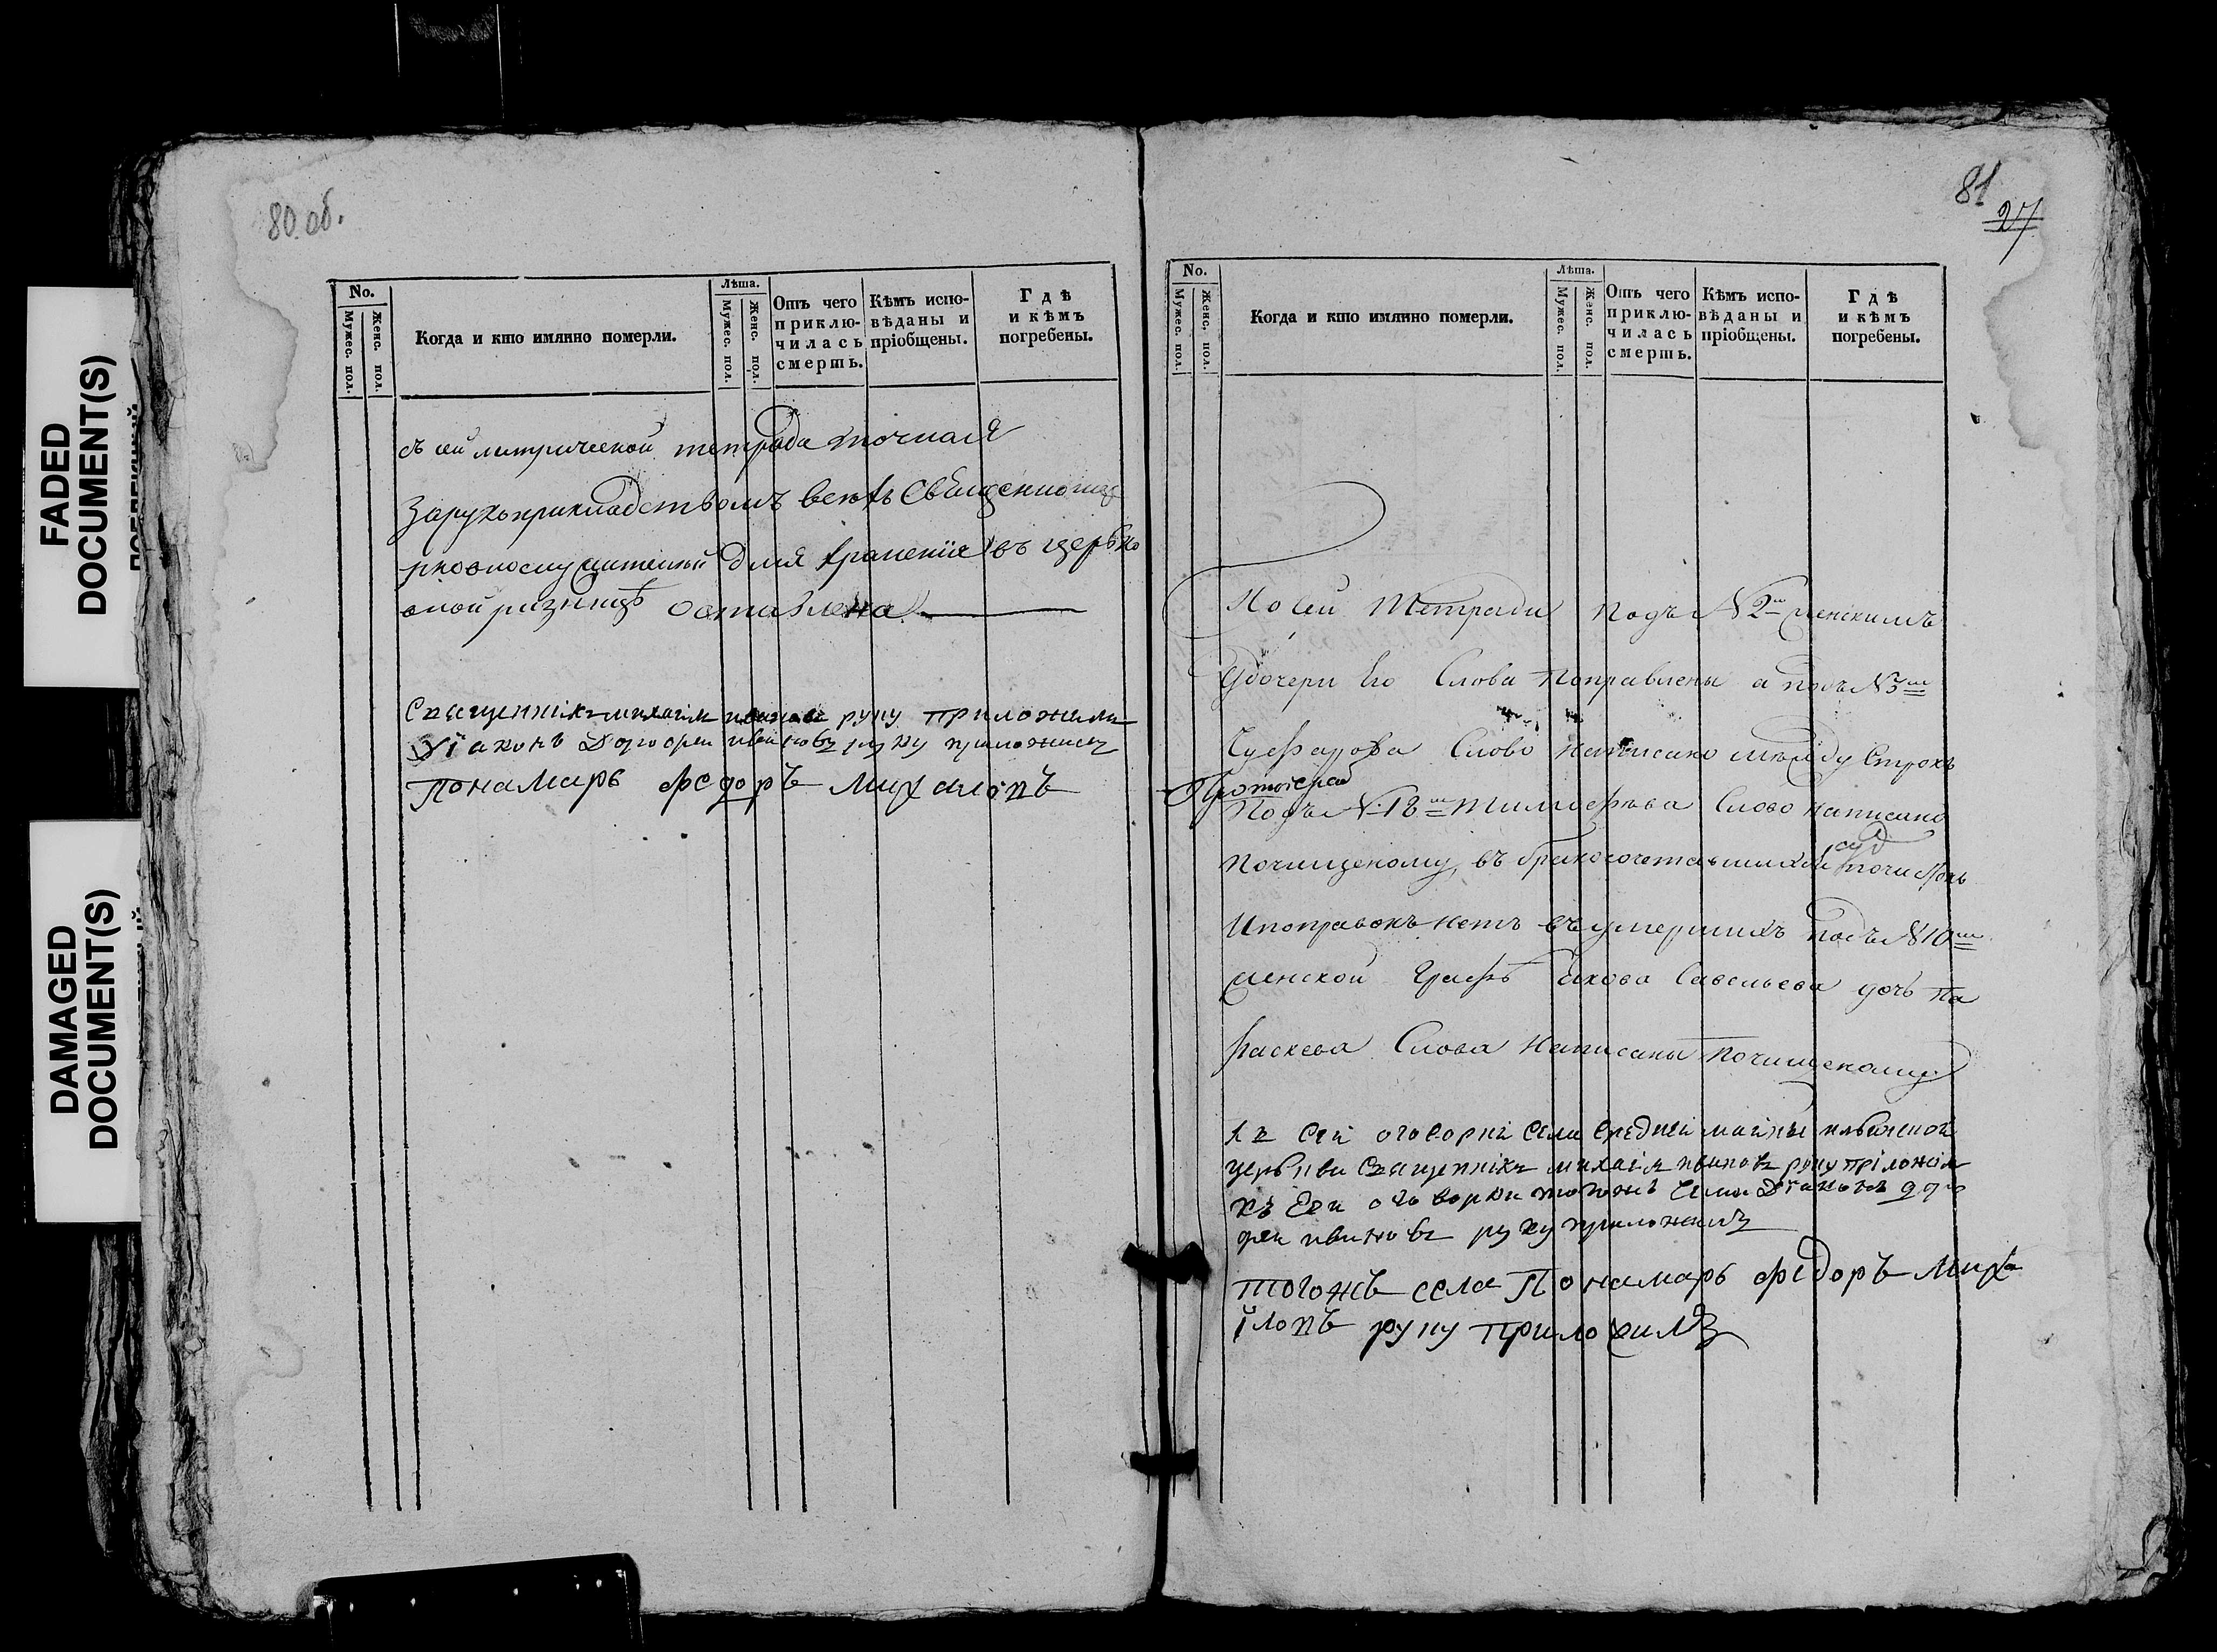 FADED
DOCUMENT(S)
DAMAGED
DOCUMENT(S)
80 об.
No.
Мужес. пол.
Женс. пол.
Когда и кто имянно померли.
Лѣта.
Мужес. пол.
Женс. пол.
Отъ чего приключилась смерть.
Кѣмъ исповѣданы и пріобщены.
Гдѣ и кѣмъ погребены.
съ сей метрической тетрада точная
Зарукоприкладствомъ всехъ Священно
для хранения въ церько
вной ризницѣ оставлена
Священникъ михаилъ ивановъ руку приложилъ
Діаконъ Дорофеи ивановъ руку приложилъ
Понамарь Федоръ Михаиловъ
81
27
No.
Мужес. пол.
Женс. пол.
Когда и кто имянно померли.
Лѣта.
Мужес. пол.
Женс. пол.
Отъ чего приключилась смерть.
Кѣмъ исповѣданы и пріобщены.
Гдѣ и кѣмъ погребены.
По сей Тетради подъ N 2м женскимъ
Удочери Его Слова поправлены а подъ N3м
Слово написано между Строкъ
Протоіерей
Подъ N 18м Тимофеева Слово написано
почищеному, въ бракосочетавшихся почисток
Ипоправокъ нетъ въ умершихъ подъ N10м
женской Графѣ Екова Савельева дочь Па
раскева Слова Написаны Почищеному
къ сей оговорки села Средней маины
церькви Священникъ михаілъ ивановъ руку пріложилъ
къ Сеи оговорки тогожъ Села Діаконъ доро
феи ивановъ руку приложилъ
тогожъ села Понамарь Федоръ Миха
йловъ руку приложилъ